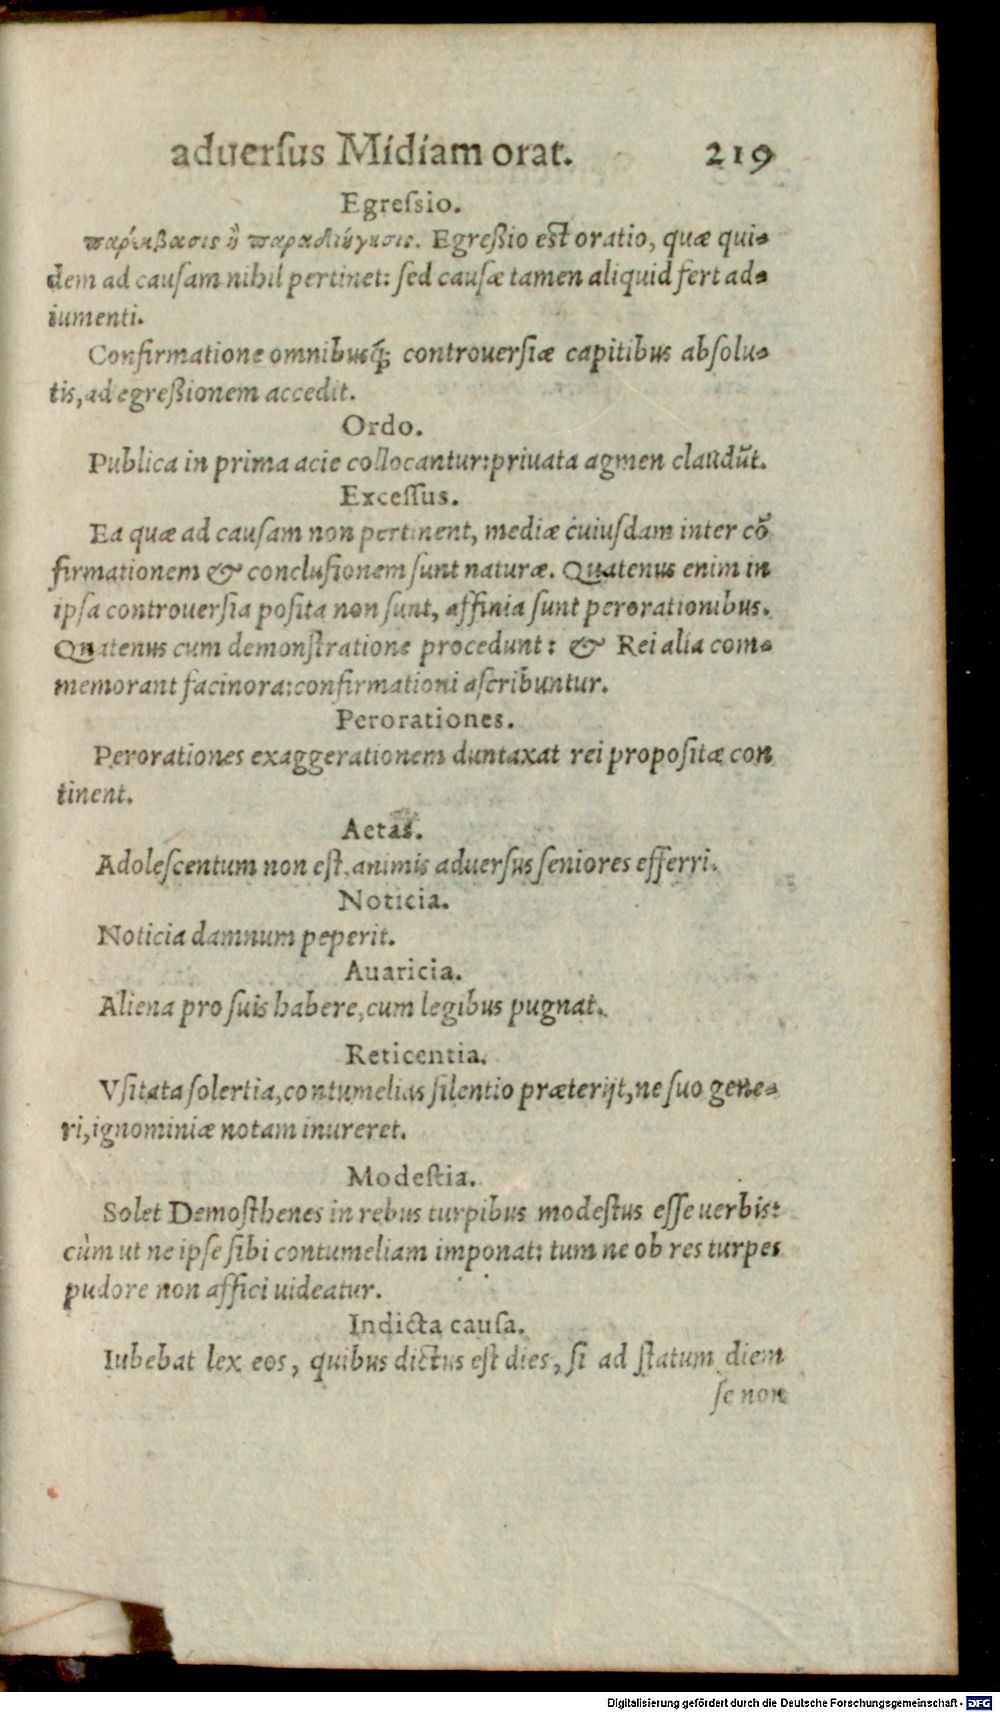 aduersus Midiam orat. 219
Egreſsio.
παρέκβασις ἢ παραδιήγησις. Egreßio est oratio, quæ qui-
dem ad cauſam nihil pertinet: ſed cauſæ tamen aliquid fert ad-
iumenti.
Confirmatione omnibusq́; controuerſiæ capitibus abſolu-
tis, ad egreßionem accedit.
Ordo.
Publica in prima acie collocantur: priuata agmen claudūt.
Exceſſus.
Ea quæ ad cauſam non pertinent, mediæ cuiuſdam inter cō
firmationem & concluſionem ſunt naturæ. Quatenus enim in
ipſa controuerſia poſita non ſunt, affinia ſunt perorationibus.
Quatenus cum demonſtratione procedunt: & Rei alia com-
memorant facinora: confirmationi aſcribuntur.
Perorationes.
Perorationes exaggerationem duntaxat rei propoſitæ con
tinent.
Aetas.
Adoleſcentum non eſt, animis aduerſus ſeniores efferri.
Noticia.
Noticia damnum peperit.
Auaricia.
Aliena pro ſuis habere, cum legibus pugnat.
Reticentia.
Vſitata ſolertia, contumelias ſilentio præterijt, ne ſuo gene-
ri, ignominiæ notam inureret.
Modeſtia.
Solet Demoſthenes in rebus turpibus modeſtus eſſe uerbis:
cùm ut ne ipſe ſibi contumeliam imponat: tum ne ob res turpes
pudore non affici uideatur.
Indicta cauſa.
Iubebat lex eos, quibus dictus eſt dies, ſi ad ſtatum diem
ſe non
Digitalisierung gefördert durch die Deutsche Forschungsgemeinschaft - DFG